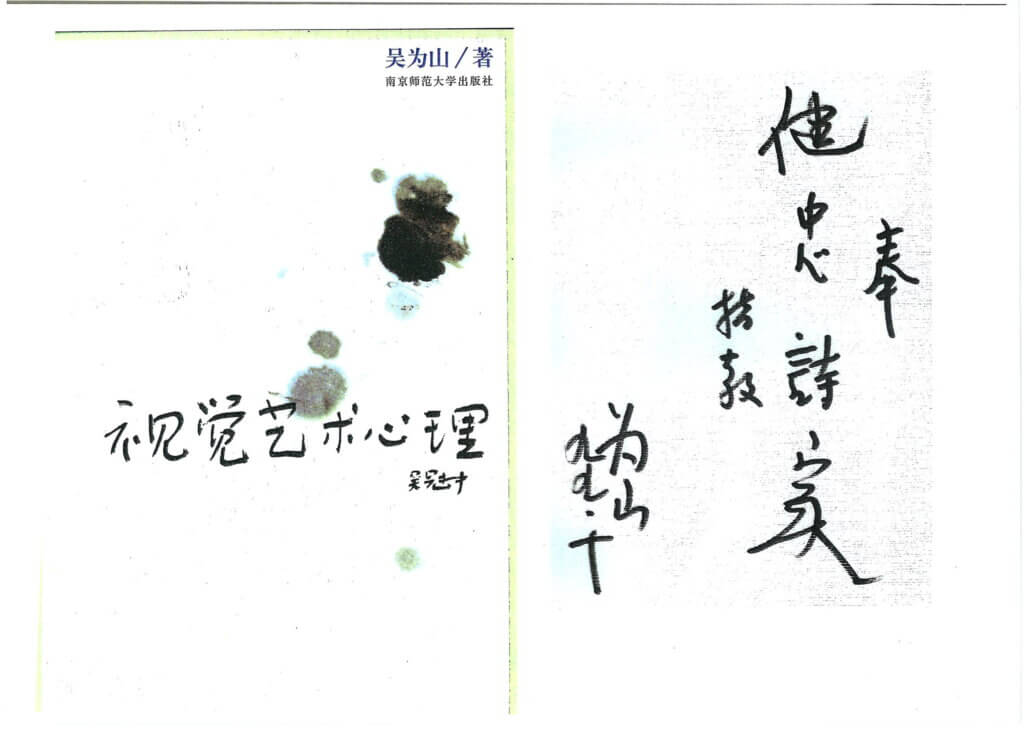 吴为山/著
南京师范大学出版社
视觉艺术心理
吴冠中
奉
健忠詩
指教
为山